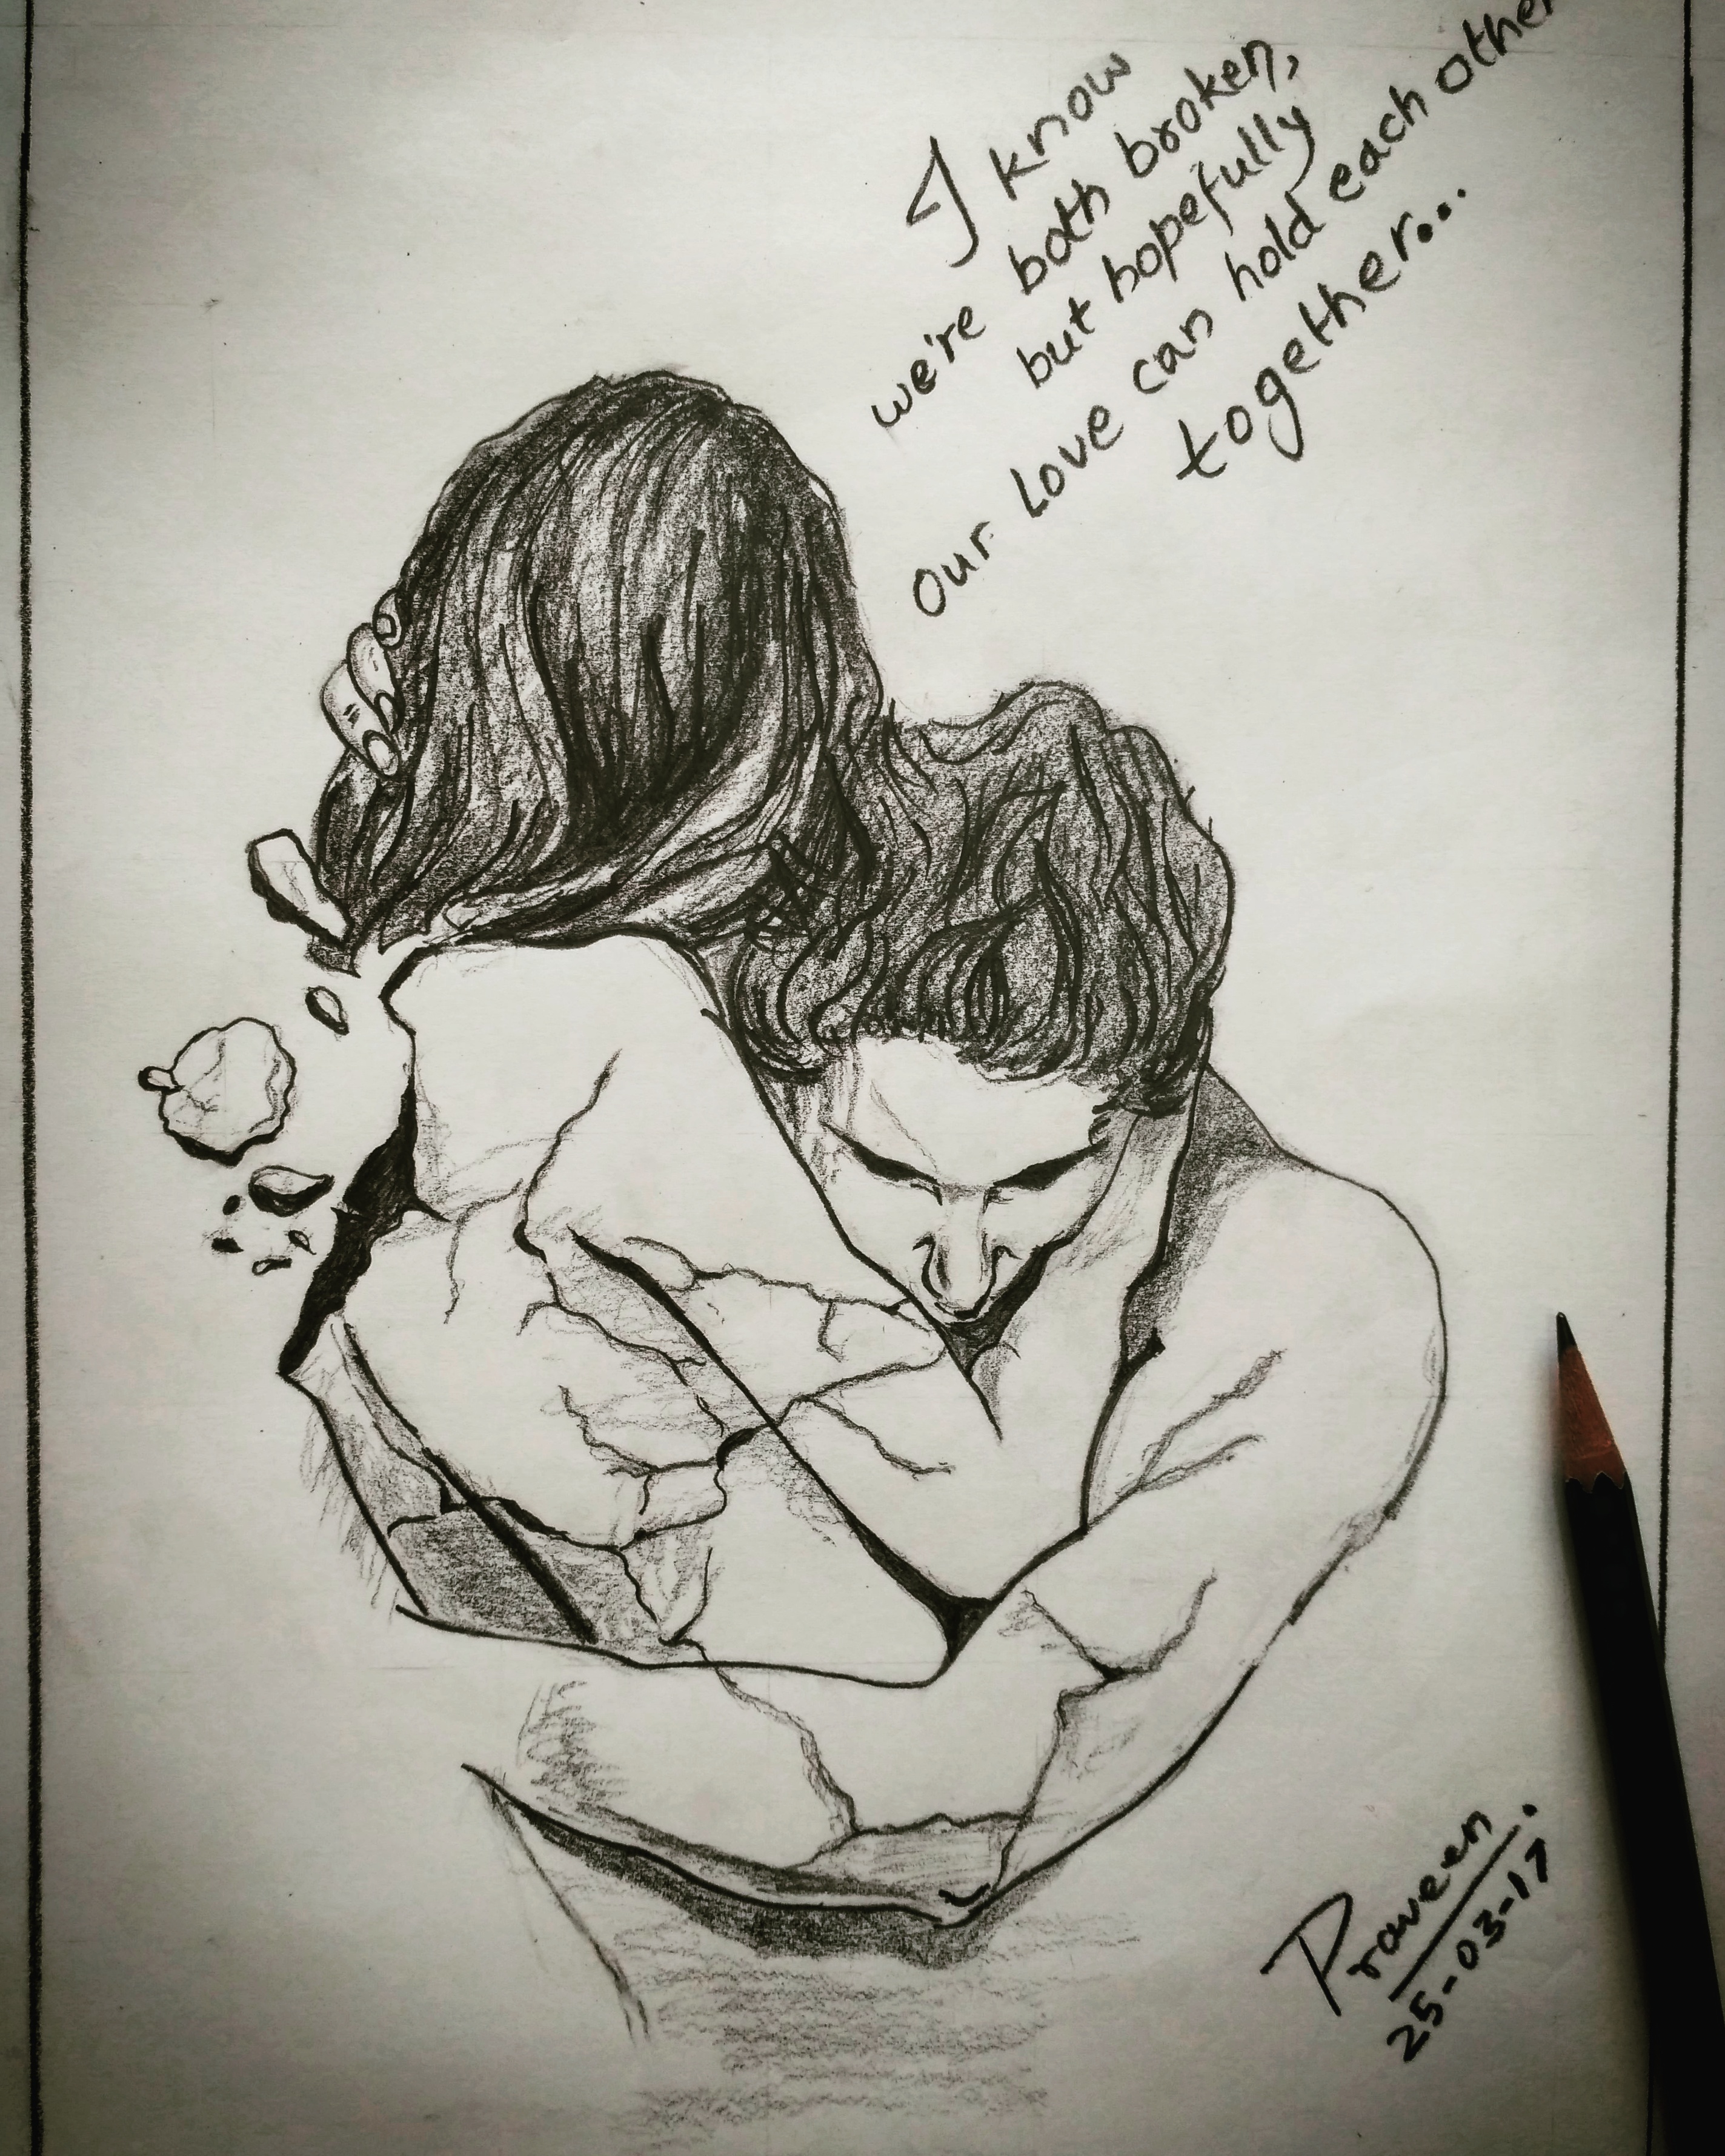 I know
we're both broken,
but hopefully
our love can hold each other
together...
Praveen.
25-03-17